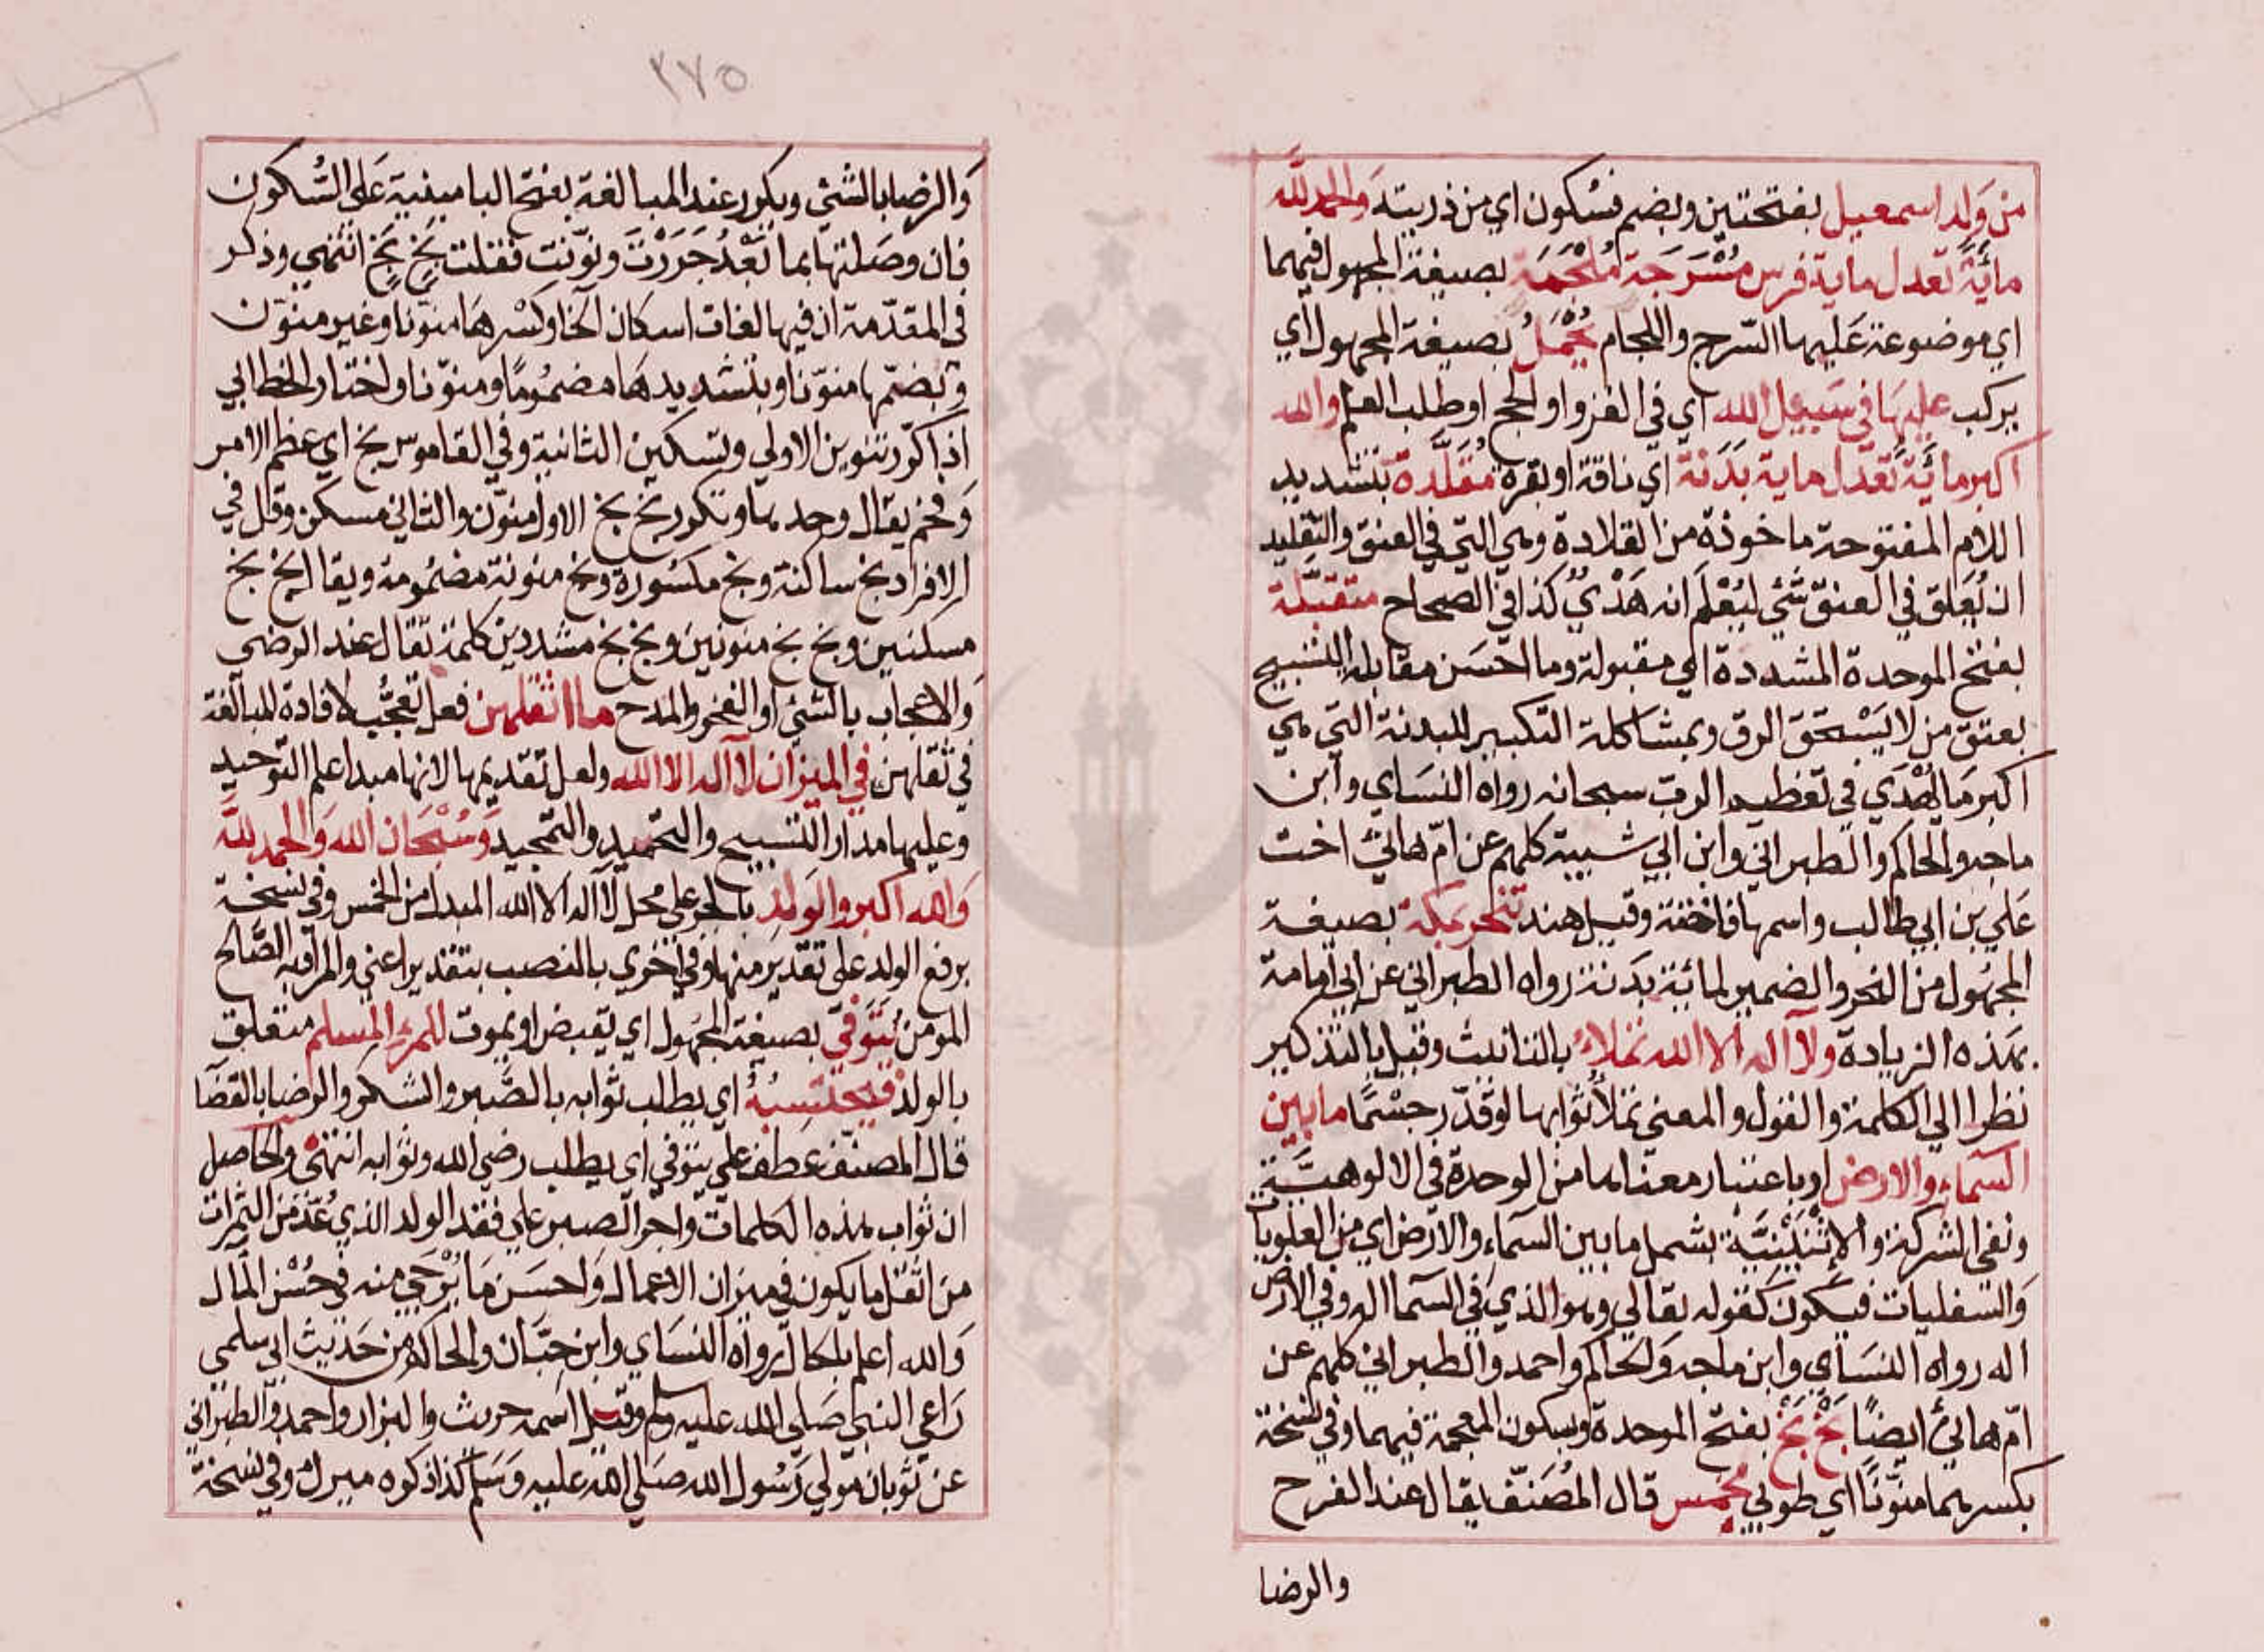 من وَلد اسمعيل بفتحتين وبضم فسكون اي من ذريته والحمد لله
مائةً تعدل ماية فرس مُسْرَجَة مُلْجَمَة بصيغة المجهول فيهما
اي موضوعة عَليها السّرج واللجام يُحْمَلُ بصيغة المجهول اي
يركب عليهَا في سَبيل الله اي في الغزو او الحج او طلب العلم والله
اكبر مائَةً تعدل ماية بَدَنة اي ناقة او بقرة مُقَلَّدة بتشديد
اللام المفتوحة ماخوذة من القلادة وهي التي في العنق والتقليد
ان يُعَلق في العنق شَئ ليُعْلَم انه هَدْيٌ كذا في الصحاح متقبَّلة
بفتح الموحدة المشددة اي مقبولة وما احسَن مقابلة التسبيح
بعتق من لا يَسْتحق الرق وبمشاكلة التكبير للبدنة التي هي
اكبر مَا يُهْدَي في تعظيم الرب سبحانه رواه النسَاي وابن
ماجه والحاكم والطبراني وابن ابي شيبة كلهم عن امّ هانئ اخت
عَلي بن ابي طالب واسمها فاختة وقيل هند تنحر بمكة بصيغة
المجهُول من النحر والضمير لمائة بَدَنة رواه الطبراني عن ابي امامة
بهذه الزيادة ولا اله الا الله تملاءُ بالتانيث وقيل بالتذكير
نظرا الي الكلمة والقول والمعني تملأ ثوابها لو قدّر جسْمًا ما بين
السَّمآء والارض او باعتبار معناها من الوحدة في الالوهيَّة
ونفي الشركة والاِثْنَيْنِيَّة يشمل ما بين السَّمآء والارض اي من العلويات
وَالسفليات فيكون كقوله تعالي وهو الذي في السّما اله وفي الارض
اله رواه النسَاي وابن ماجه وَالحاكم واحمد والطبراني كلهم عن
امّ هانئ ايضًا بَخْ بَخْ بفتح الموحدة وسكون المعجمة فيهما وفي نسخة
بكسرهما منوّنًا اي طوبي لخمس قال المُصَنّف يقال عند الفرح
والرضا
٢٧٥
وَالرضا بالشئي ويكرر عند المبالغة بفتح البا مبنية عَلي السُّكون
فان وصَلتها بما بَعْدُ جَرَرْتَ ونوّنت فقلت بَخٍ بَخٍ انتهي وذكر
في المقدّمة ان فيها لغات اسكان الخا وكسْرهَا منوّنا وغير منوّن
وبضمّها منوّنا وبتشديدهَا مضمُومًا ومنوّنا واختار الخطابي
اذا كرّر تنوين الاولي وتسكين الثانية وفي القاموس بخ اي عظم الامر
وَفخم يقال وحدها وتكرر بخ بخ الاول منوّن والثاني مسكن وقل في
الافراد بخ ساكنة وبخ مكسُورة وبخ منونة مضمُومة ويقال بخ بخ
مسكنين وبخ بخ منونين وبخ بخ مشددين كلمة تقال عند الرضي
وَالاعجاب بالشئ او الفخر والمَدح ما اثقلهن فعل تعجُّب لافادة المبالغة
في ثقلهن في الميزان لا اله الا الله ولعل تقديمها لانها مبدا علم التوحيد
وعليها مدار التسبيح والتحميد والتمجيد وَسُبْحَان الله وَالحمد لله
وَالله اكبر والوَلد بالجر علي محل لا اله الا الله المبدل من الخمس وفي نسخة
برفع الولد علي تقدير منها وفي اخري بالنصب بتقدير اعني والمراد به الصَّالح
المومن يُتَوفّي بصيغة المجهُول اي يقبض او يموت للمرء المسلم متعلق
بالولد فيحتسبُهُ اي يطلب ثوابه بالصَّبر والشكر والرضا بالقضا
قال المصنّف عطف علي يتوفي اي يطلب رضي الله وثوابه انتهي والحاصل
ان ثواب هذه الكلمات واجر الصبر علي فقد الولد الذي عُدّ من الثمرات
من اثقل ما يكون في ميزان الاعمال وَاحسَن مَا يُرْجَي منه في حُسْن المآل
وَالله اعلم بالحال رواه النسَاي وابن حِبَّان والحاكم من حَديث ابي سلمي
رَاعي النبي صَلي الله عليه وسلم وقيل اسمه حريث والبزار واحمد والطبراني
عن ثوبان مَولي رَسُول الله صَلي الله عليه وَسَلم كذا ذكره ميرك وفي نسخة